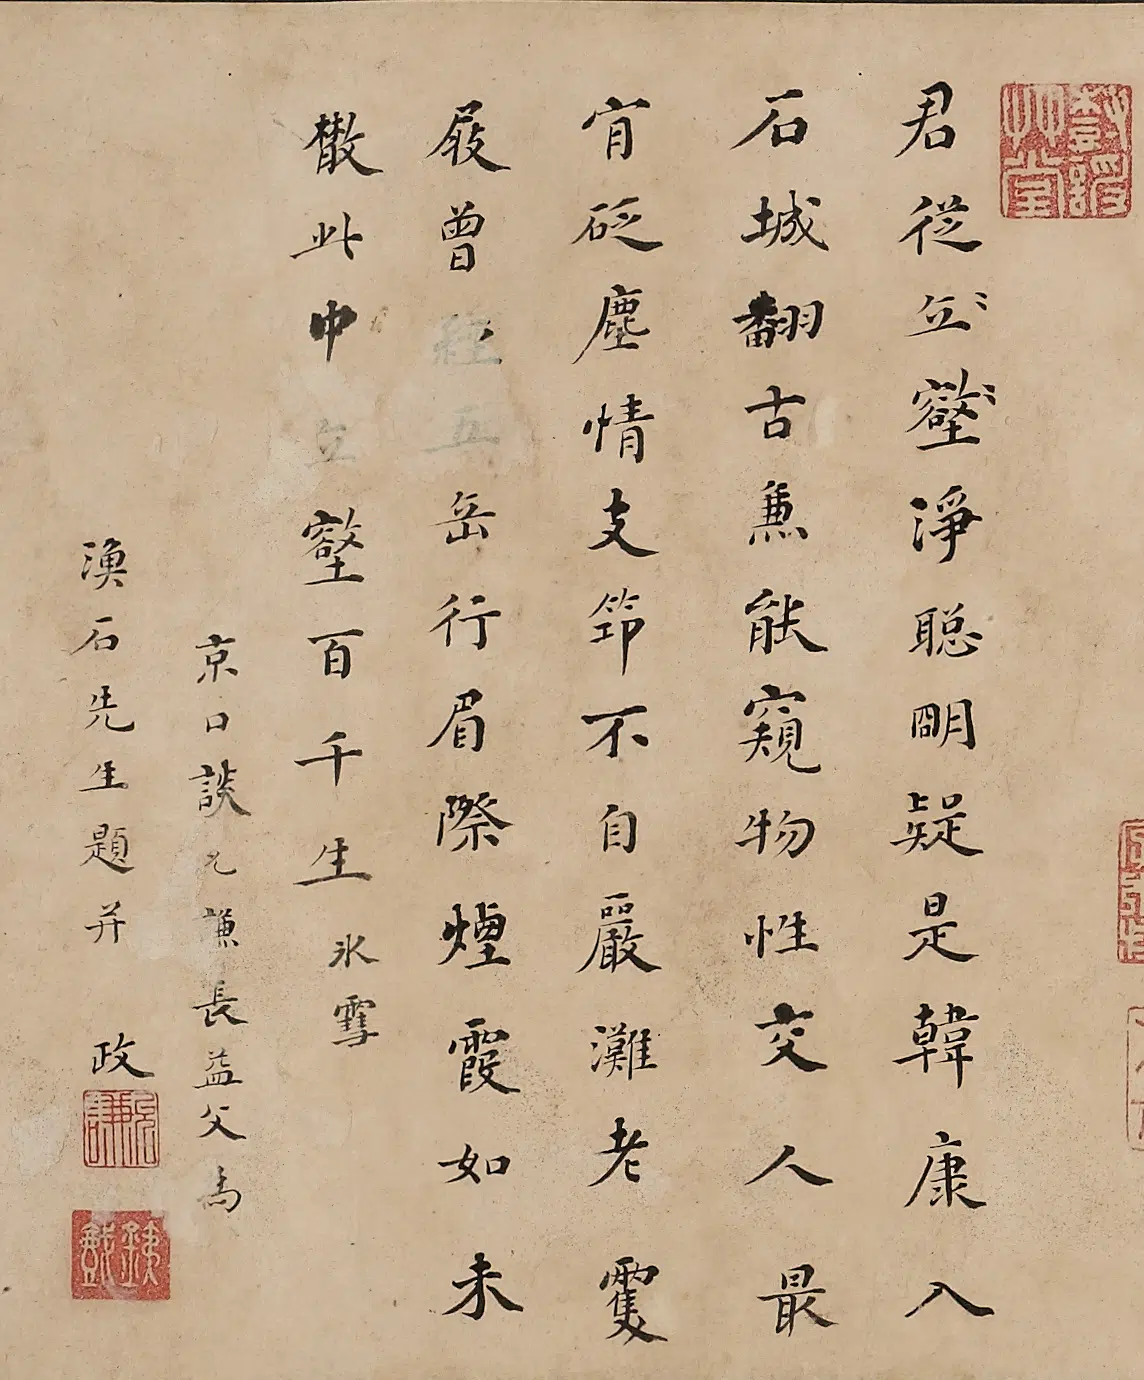 君從丘壑淨聰明疑是韓康入
石城翻古兼能窺物性交人最
宜砭塵情支筇不自嚴灘老雙
屐曾經五岳行眉際煙霞如未
散此中丘壑百千生氷雪
京口談允謙長益父為
漁石先生題并 政
允謙